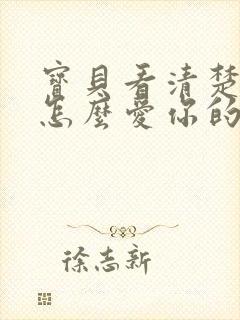 寶貝看清楚
怎麼愛你的
徐志新